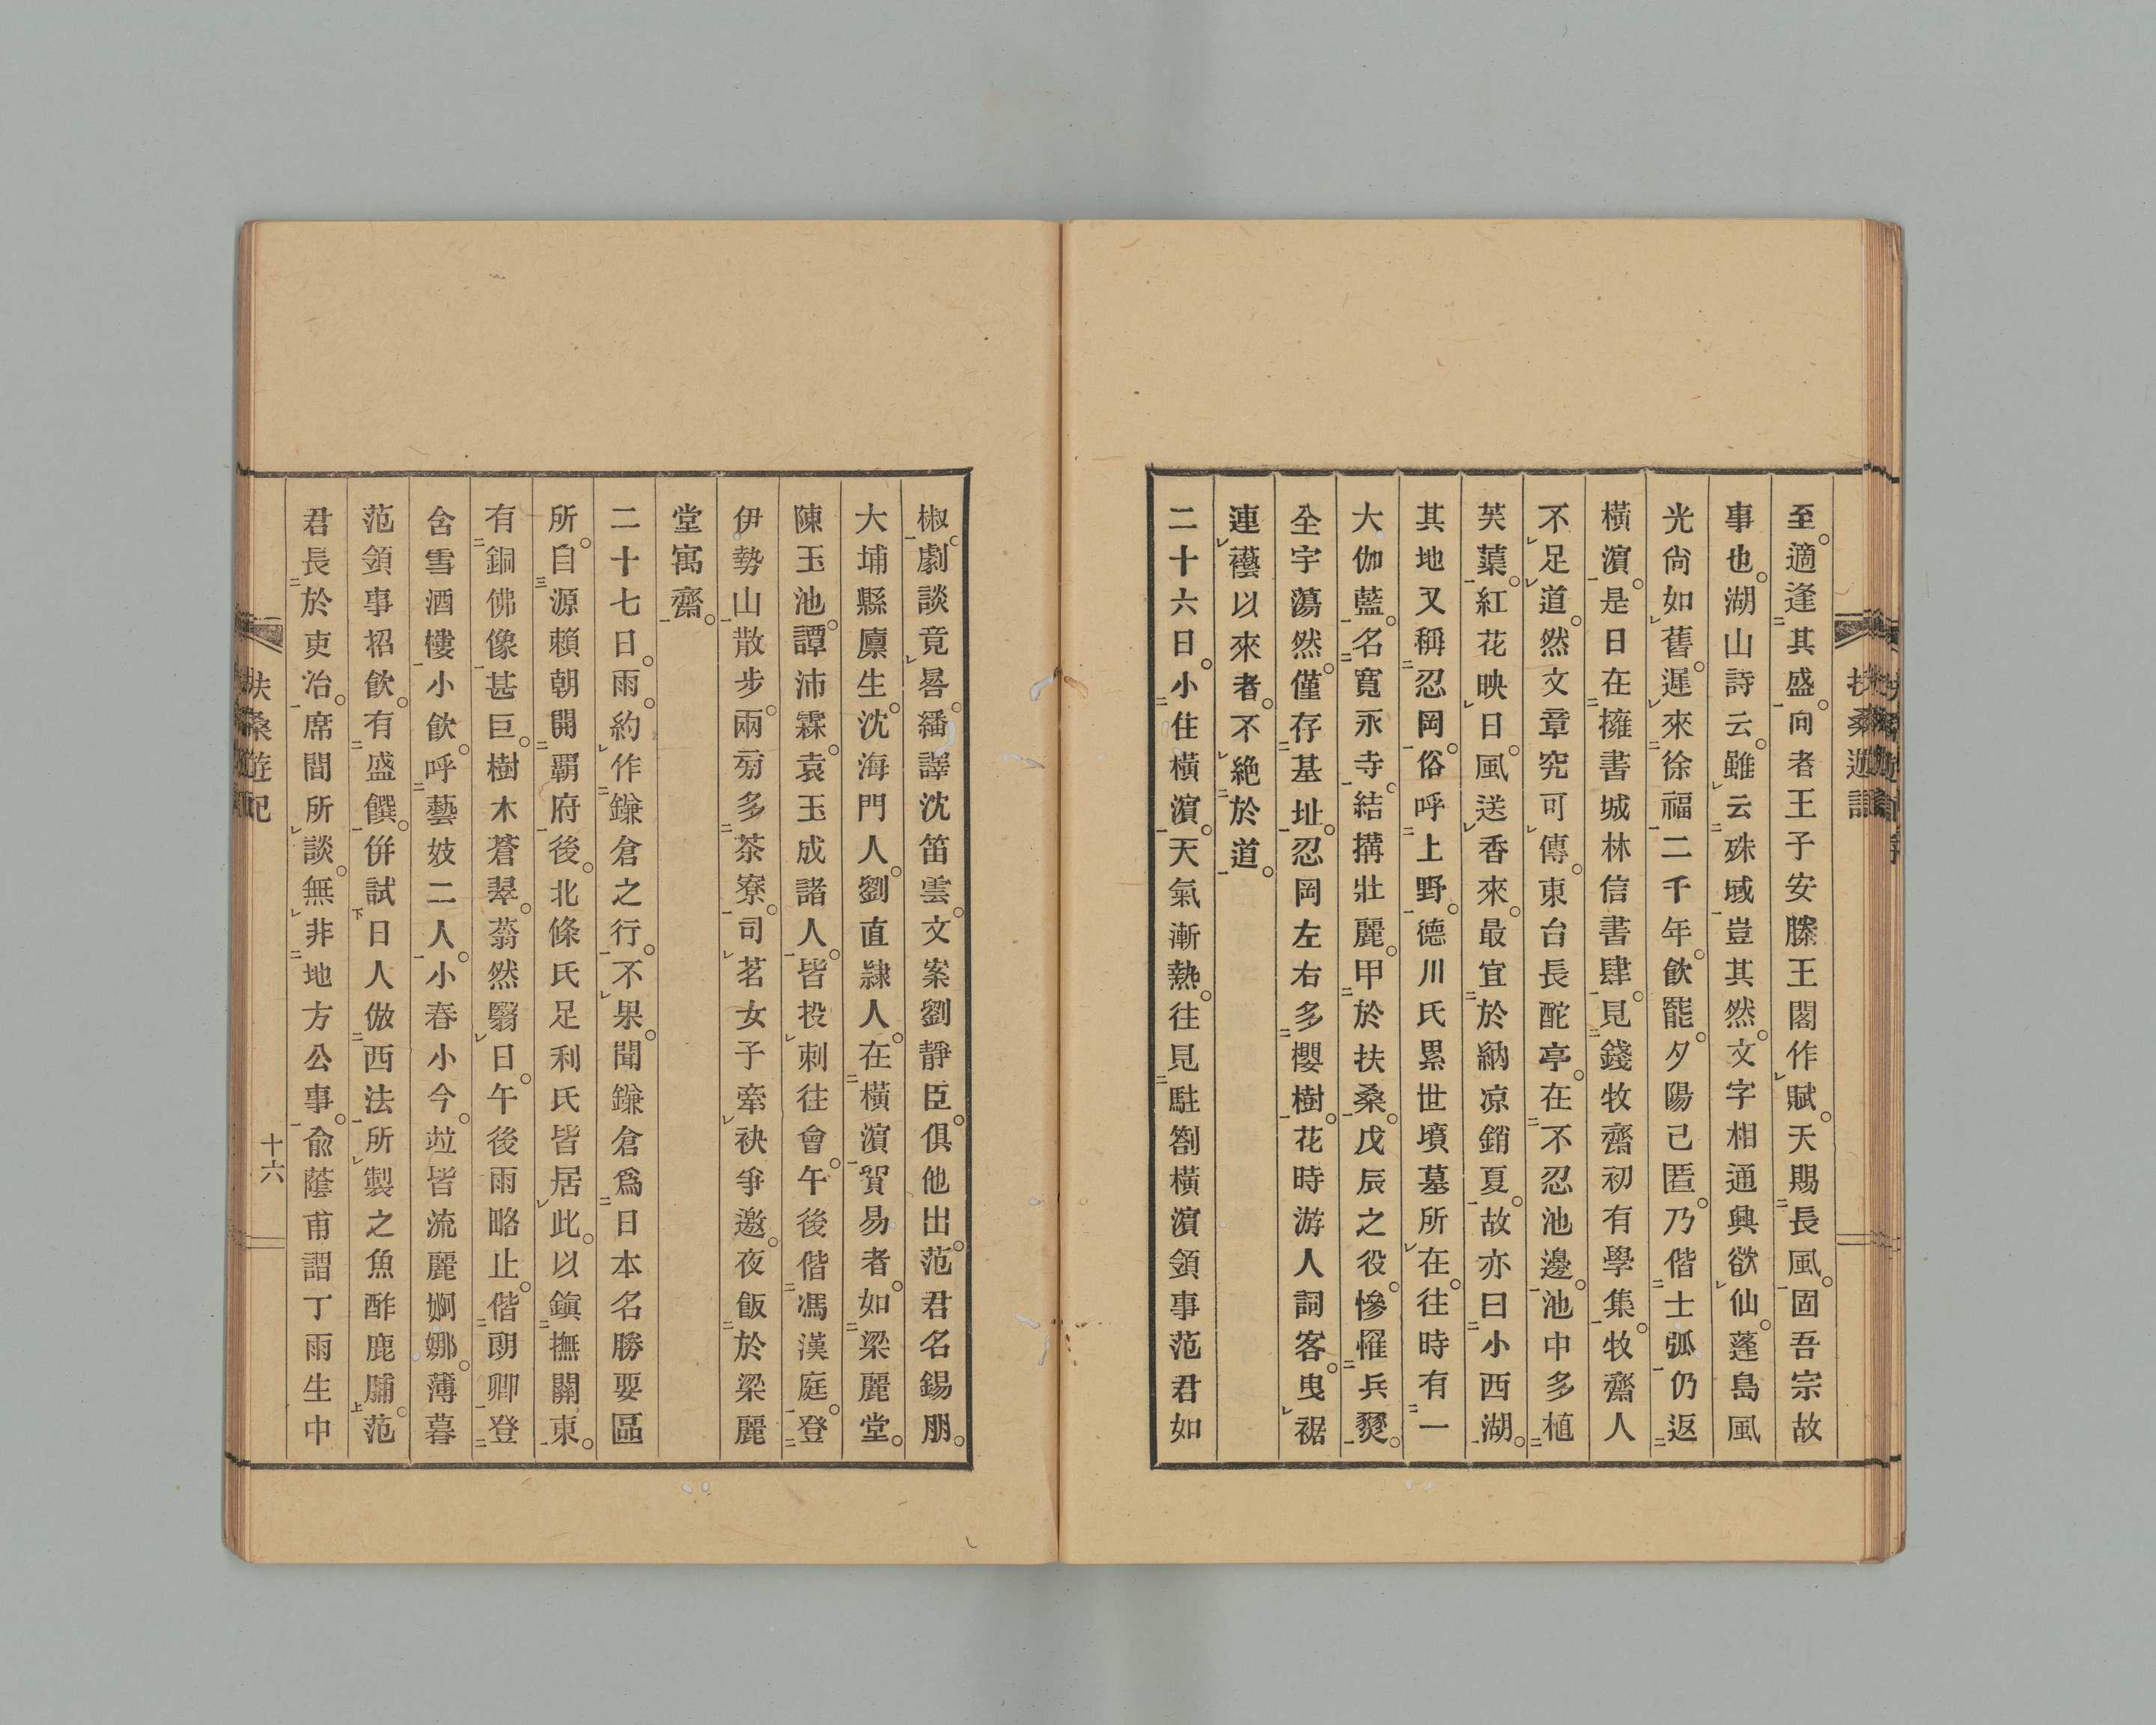 扶桑遊記
至。適逢其盛。向者王子安滕王閣作賦。天賜長風。固吾宗故
事也。湖山詩云。雖云殊域豈其然。文字相通興欲仙。蓬島風
光尙如舊。遲來徐福二千年。飮罷。夕陽已匿。乃偕士弧仍返
橫濵。是日在擁書城林信書肆。見錢牧齋初有學集。牧齋人
不足道。然文章究可傳。東台長酡亭。在不忍池邊。池中多植
芙蕖。紅花映日。風送香來。最宜於納凉銷夏。故亦曰小西湖。
其地又稱忍岡。俗呼上野。德川氏累世墳墓所在。往時有一
大伽藍。名寬永寺。結搆壯麗。甲於扶桑。戊辰之役。慘罹兵燹。
全宇蕩然。僅存基址。忍岡左右多櫻樹。花時游人詞客。曳裾
連襼以來者。不絕於道。
二十六日。小住橫濵。天氣漸熱。往見駐劄橫濵領事范君如
椒。劇談竟晷。繙譯沈笛雲。文案劉靜臣。俱他出。范君名錫朋。
大埔縣廩生。沈海門人。劉直隸人。在橫濵貿易者。如梁麗堂。
陳玉池。譚沛霖。袁玉成諸人。皆投刺往會。午後偕馮漢庭。登
伊勢山散步。兩旁多茶寮。司茗女子牽袂爭邀。夜飯於梁麗
堂寓齋。
二十七日。雨。約作鎌倉之行。不果。聞鎌倉爲日本名勝要區
所。自源賴朝開覇府後。北條氏足利氏皆居此。以鎭撫關東。
有銅佛像甚巨。樹木蒼翠。蓊然翳日。午後雨略止。偕朗卿登
含雪酒樓小飮。呼藝妓二人。小春小今。竝皆流麗婀娜。薄暮
范領事招飮。有盛饌。併試日人倣西法所製之魚酢鹿脯。范
君長於吏治。席間所談。無非地方公事。兪蔭甫謂丁雨生中
扶桑遊記
十六